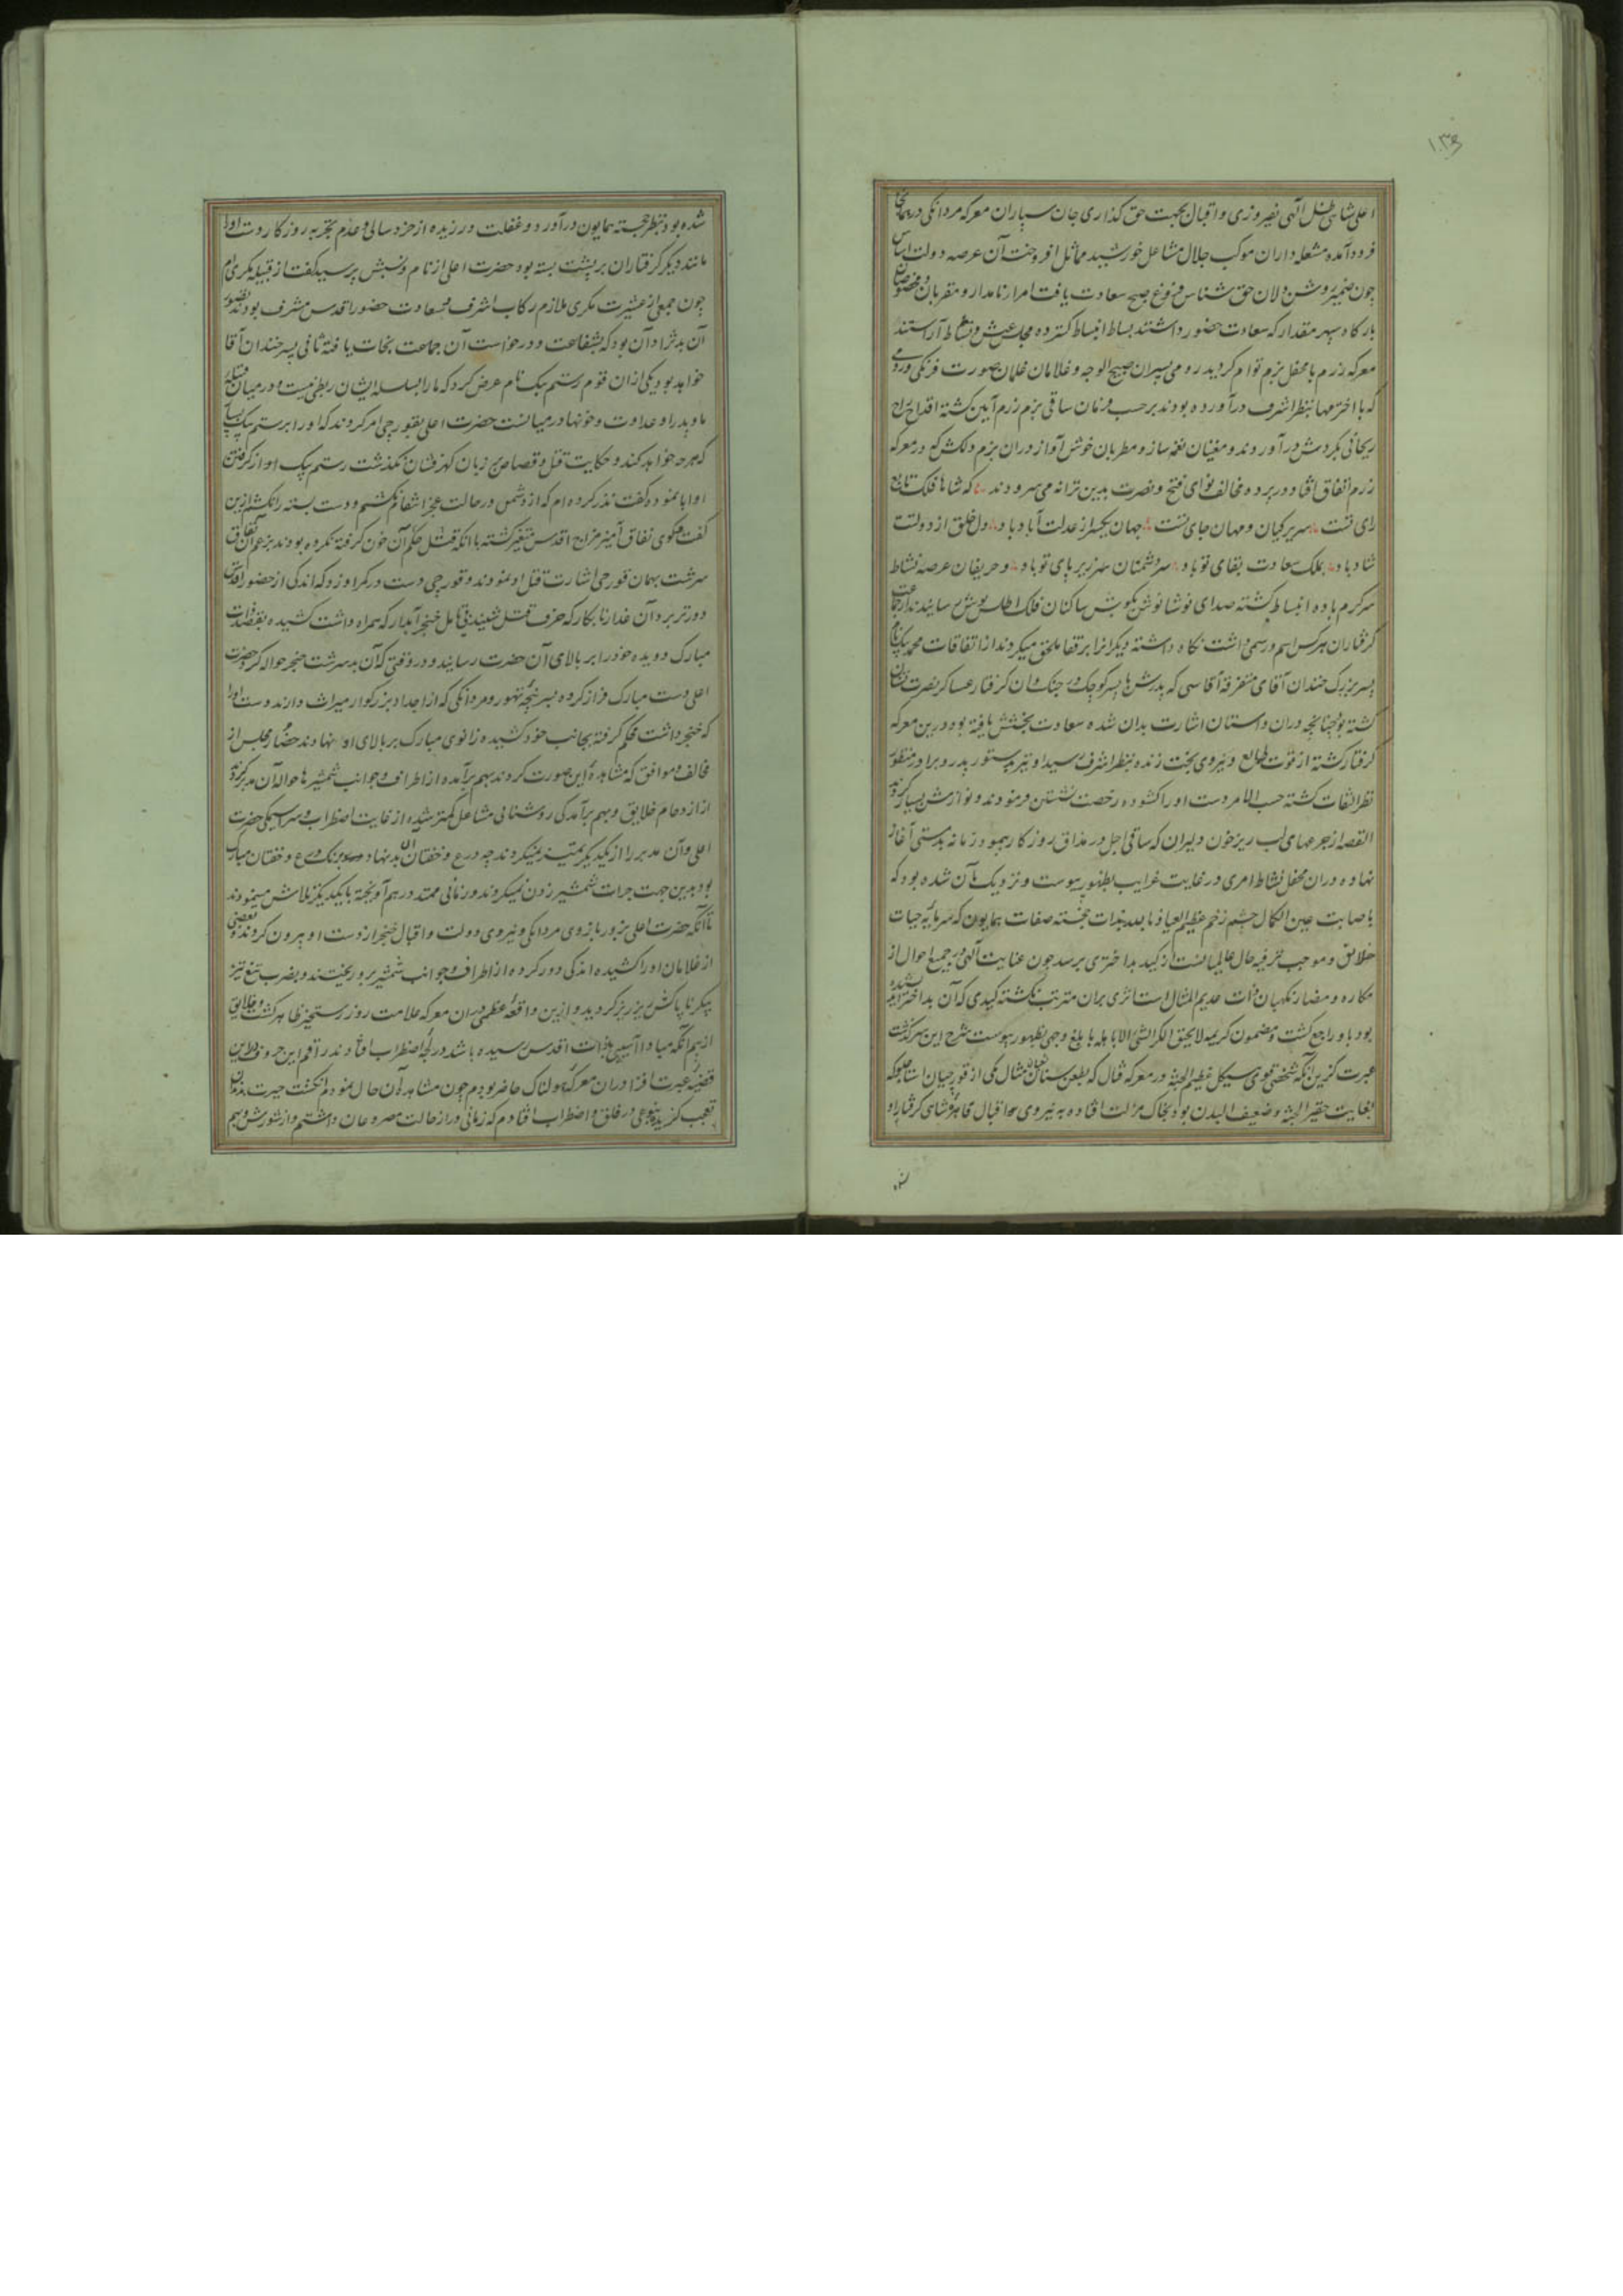 اعلی شاهی ظل الهی بفیروزی و اقبال بجهت حق گذاری جان سپاران معرکه مردانگی در همانجا
فرود آمده مشعله داران موکب جلال مشاعل خورشید مماثل افروختند آن عرصه دولت اساس
چون ضمیر روشن دلان حق شناس فروغ صبح سعادت یافت امراء نامدار و مقربان و مخصوصان
بارگاه سپهر مقدار که سعادت حضور داشتند بساط انبساط گسترده مجلس عیش و نشاط آراستند
معرکه رزم با محفل بزم توام گردید رومی پسران صبیح الوجه و غلامان غلمان صورت فرنگی و روسی
که با اخترمها بنظر اشرف درآورده بودند برحسب فرمان ساقی بزم رزم آیین گشته اقداح راح
ریحانی بگردش درآوردند و مغنیان نغمه ساز و مطربان خوش آواز دران بزم دلکش که در معرکه
رزم اتفاق افتاد در پرده مخالف نوای فتح و نصرت بدین ترانه می سرودند که شاها فلک تابع
رای تست سریر کیان و مهان جای تست جهان یکسر از عدلت آباد باد دل خلق از دولتت
شاد باد بملک سعادت بقای تو باد سر دشمنان زیر پای تو باد و حریفان عرصه نشاط
سرگرم باده انبساط گشته صدای نوشانوش بگوش ساکنان فلک اطلس پوش رسانیدند از جماعت
گرفتاران هر کس اسم و رسمی داشت نگاه داشته دیگرانرا برقفا ملحق میکردند از اتفاقات محمد بیک نام
پسر بزرگ خندان آقای متفرقه آقاسی که پدرش با پسر کوچک در جنک وان گرفتار عساکر نصرت نشان
گشته بود چنانچه دران داستان اشارت بدان شده سعادت بخشش یافته بود درین معرکه
گرفتار گشته از قوت طالع و نیروی بخت زنده بنظر اشرف رسید او نیز بدستور پدر و برادر منظور
نظر التفات گشته حسب الامر دست او را گشوده رخصت نشستن فرمودند و نوازش بسیار کردند
القصه از جرعهای لب ریز خون دلیران که ساقی اجل در مذاق روزگار پیموده زمانه بدمستی آغاز
نهاده دران محفل نشاط امری در غایت غرایب بظهور پیوست و نزدیک بآن شده بود که
باصابت عین الکمال چشم زخم عظیم العیاذ بالله بذات خجسته صفات همایون که سرمایه حیات
خلایق و موجب ترفیه حال عالمیانست از کید بداختری برسد چون عنایت الهی در جمیع احوال از
مکاره و مضار نگهبان ذات عدیم المثال است اثری بران مترتب نگشته کیدی که آن بداختر اندیشیده
بود باو راجع گشت و مضمون کریمه لا یحیق المکر السیئ الا باهله با بلغ وجهی بظهور پیوست شرح این سرگذشت
عبرت گزین آنکه شخصی قوی هیکل عظیم الجثه در معرکه قتال که بطعن سنان ثعبان مثال یکی از قورچیان استاجلو که
بغایت حقیر الجثه و ضعیف البدن بود بخاک مذلت افتاده به نیروی اقبال قاهره شاهی گرفتار او
شده بود بنظر خجسته همایون درآورد و غفلت ورزیده از خرد سالی و عدم تجربه روزگار دست او را
مانند دیگر گرفتاران بر پشت بسته بود حضرت اعلی از نام و نسبش پرسید گفت از قبیله مکری ام
چون جمعی از عشیرت مکری ملازم رکاب اشرف و بسعادت حضور اقدس مشرف بودند تصور
آن بدنژاد آن بود که بشفاعت و درخواست آن جماعت نجات یافته ثانی پسر خندان آقا
خواهد بود یکی از ان قوم رستم بیک نام عرض کرد که ما را بسلسله ایشان ربطی نیست و در میان قبیله
ما و پدر او عداوت و خونها در میانست حضرت اعلی بقورچی امر کردند که او را برستم بیک بسپار
که هرچه خواهد کند و حکایت قتل و قصاص بر زبان گهرفشان نگذشت رستم بیک او از گرفتن
او ابا نموده گفت نذر کرده ام که از دشمن در حالت عجز انتقام نکشم و دست بسته را نکشم ازین
گفت و گوی نفاق آمیز مزاج اقدس متغیر گشته با آنکه قتل حکم آن خون گرفته نکرده بودند بزعم آن نفاق
سرشت بهمان قورچی اشارت قتل او نمودند و قورچی دست در کمر او زد که اندکی از حضور اقدس
دورتر برد آن غدار نابکار که حرف قتل شنید بی تامل خنجر آبدار که همراه داشت کشیده بقصد ذات
مبارک دویده خود را بر بالای آن حضرت رسانید و در وقتی که آن بدسرشت خنجر حواله کرد حضرت
اعلی دست مبارک فراز کرده بسرپنجه تهور و مردانگی که از اجداد بزرگوار میراث دارند دست او را
که خنجر داشت محکم گرفته بجانب خود کشیده زانوی مبارک بر بالای او نهادند حضار مجلس از
مخالف و موافق که مشاهده این صورت کردند بهم برآمده از اطراف و جوانب شمشیرها حواله آن مدبر کردند
از ازدحام خلایق و بهم برآمدگی روشنائی مشاعل کمتر شده از غایت اضطراب و سراسیمگی حضرت
اعلی و آن مدبر را از یکدیگر تمیز نمیکردند چه درع و خفتان آن بدنهاد برنک درع و خفتان مبارک
بود بدین جهت جرات شمشیر زدن نمیکردند و زمانی ممتد درهم آویخته با یکدیگر تلاش مینمودند
تا آنکه حضرت اعلی بزور بازوی مردانگی و نیروی دولت و اقبال خنجر از دست او بیرون کردند و بعضی
از غلامان او را کشیده اندکی دور کرده از اطراف و جوانب شمشیر برو ریختند و بضرب تیغ تیز
پیکر ناپاکش ریزریز گردید و ازین واقعه عظمی دران معرکه علامت روز رستخیز ظاهر گشت و خلایق
از بیم آنکه مبادا آسیبی بذات اقدس رسیده باشد در لجه اضطراب افتادند راقم این حروف در این
قضیه عبرت افزا دران معرکه هولناک حاضر بودم چون مشاهده آن حال نمودم انگشت حیرت بدندان
تعجب گزیده بنوعی در قلق و اضطراب افتادم که زمانی دراز حالت مصروعان داشتم و از شورش و بیم